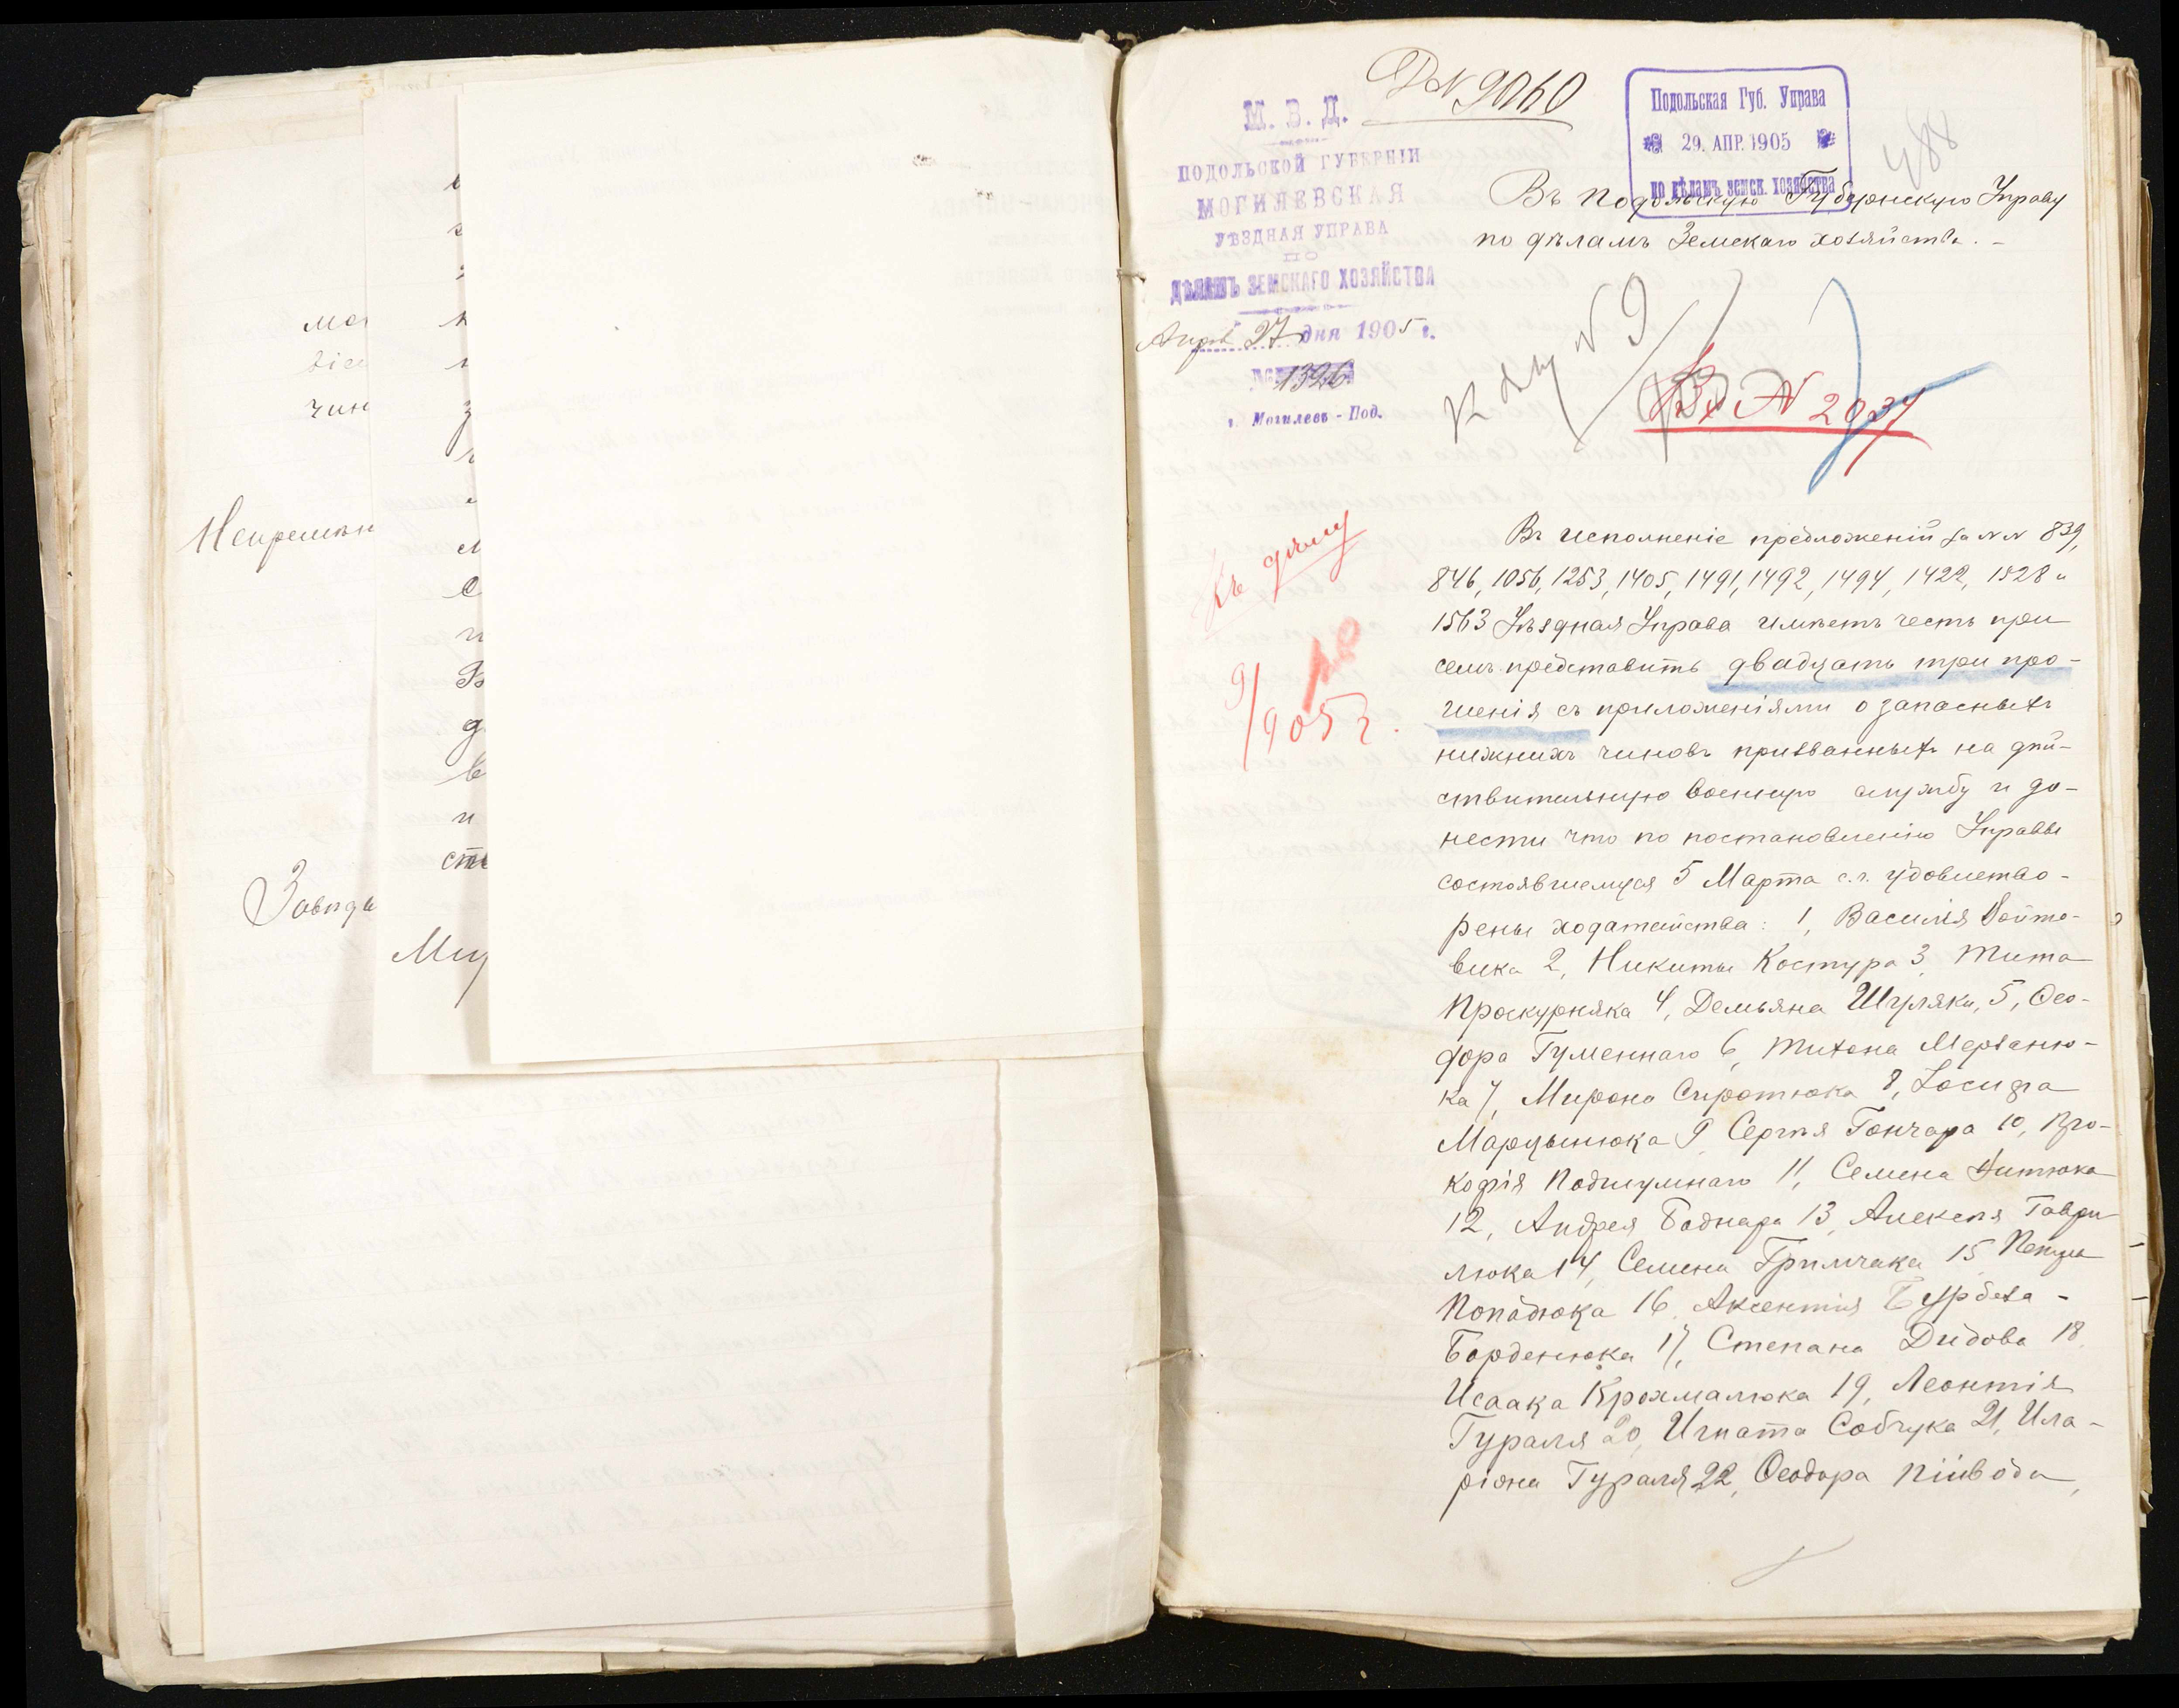 мо
біс
чин
Непремѣн
Завѣды
сть
Миу
№ 9060
М. В. Д.
ПОДОЛЬСКОЙ ГУБЕРНІИ
МОГИЛЕВСКАЯ
УѢЗДНАЯ УПРАВА
ПО
ДѢЛАМЪ ЗЕМСКАГО ХОЗЯЙСТВА
Апрѣ 27 дня 1905 г.
№ 1326
г. Могилевъ - Под.
Подольская Губ. Управа
29. АПР. 1905
по дѣламъ земск. хозяйства
488
Въ Подольскую Губернскую Управу
по дѣламъ Земскаго хозяйства. -
К дѣлу № 9
Вх № 2037
Къ дѣлу
10
9/905 г.
Въ исполненіе предложеній за №№ 839,
846, 1056, 1253, 1405, 1491, 1492, 1494, 1422, 1528 и
1563 Уѣздная Управа имѣетъ честь при
семъ представить двадцать три про-
шенія съ приложеніями о запасныхъ
нижнихъ чиновъ призванныхъ на дѣй-
ствительную военную службу и до-
нести что по постановленію Управы
состоявшемуся 5 Марта с.г. удовлетво-
рены ходатайства: 1, Василія Войто-
вика 2, Никиты Костура 3, Тита
Проскурняка 4, Демьяна Шуляки, 5, Ѳео-
дора Гуменнаго 6, Тихона Мерзаню-
ка 7, Мирона Сиротюка 8, Іосифа
Марцынюка 9, Сергѣя Гончара 10, Про-
кофія Подшумнаго 11, Семена Витюка
12, Андрея Боднара 13, Алексѣя Гаври-
люка 14, Семена Гримчака 15 Петра
Попадюка 16, Аксентія Бурбеха -
Борденюка 17, Степана Дидова 18,
Исаака Крохмалюка 19, Леонтія
Гураля 20, Игната Собчука 21, Ила-
ріона Гураля 22, Ѳеодора Пійвода,